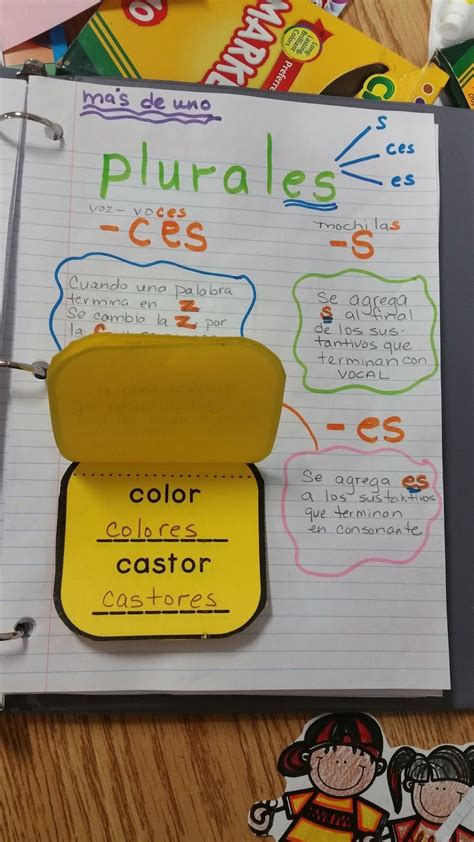 MARKE
Preferre
Long
Lasting
Brilliant
Colors
más de uno
plurales
s
ces
es
voz - voces
-ces
mochilas
-s
Cuando una palabra
termina en z
Se cambia la z por
la c
Se agrega
s al final
de los sus-
tantivos que
terminan con
VOCAL
-es
Se agrega es
a los sustantivos
que terminan
en consonante.
color
colores
castor
castores